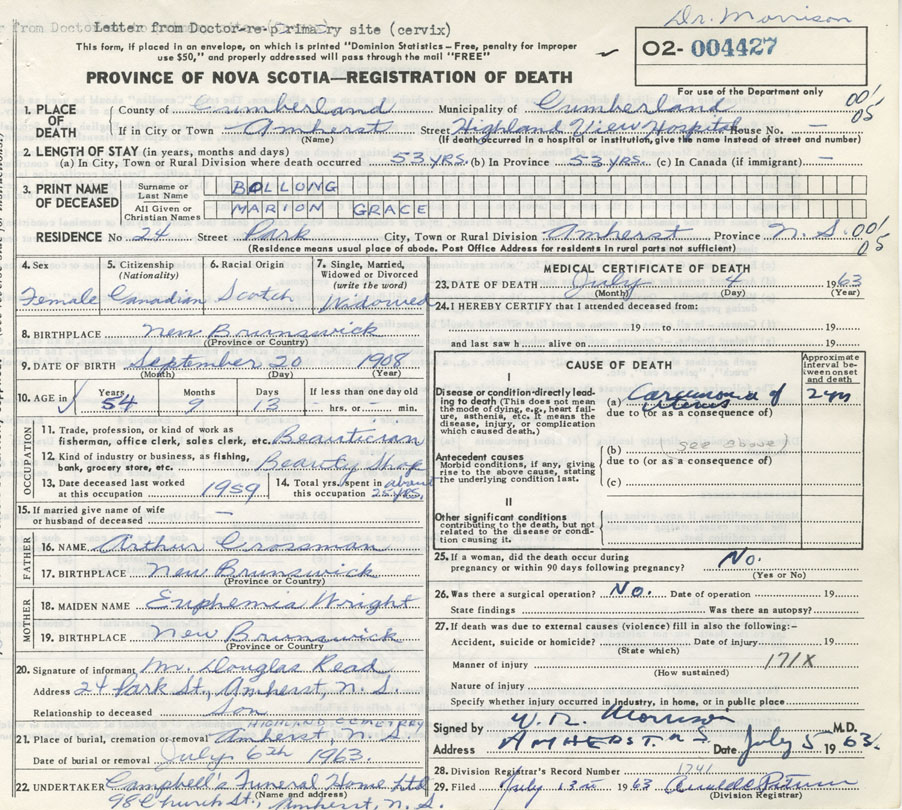 Letter from Doctor-re-primary site (cervix)
Dr. Morrison
This form, if placed in an envelope, on which is printed "Dominion Statistics – Free, penalty for improper
use $50," and properly addressed will pass through the mail "FREE"
O2- 004427
For use of the Department only
PROVINCE OF NOVA SCOTIA—REGISTRATION OF DEATH
1. PLACE OF DEATH County of Cumberland Municipality of Cumberland
If in City or Town Amherst Street Highland View Hospital House No. —
(Name) (If death occurred in a hospital or institution, give the name instead of street and number)
2. LENGTH OF STAY (in years, months and days)
(a) In City, Town or Rural Division where death occurred 53 yrs. (b) In Province 53 yrs. (c) In Canada (if immigrant) —
3. PRINT NAME OF DECEASED Surname or Last Name BOLLONG
All Given or Christian Names MARION GRACE
RESIDENCE No 24 Street Park City, Town or Rural Division Amherst Province N. S.
(Residence means usual place of abode. Post Office Address for residents in rural parts not sufficient)
4. Sex Female
5. Citizenship (Nationality) Canadian
6. Racial Origin Scotch
7. Single, Married, Widowed or Divorced (write the word) Widowed
8. BIRTHPLACE New Brunswick
(Province or Country)
9. DATE OF BIRTH September 20 1908
(Month) (Day) (Year)
10. AGE in Years 54 Months 9 Days 13 If less than one day old – hrs. or – min.
OCCUPATION
11. Trade, profession, or kind of work as fisherman, office clerk, sales clerk, etc. Beautician
12. Kind of industry or business, as fishing, bank, grocery store, etc. Beauty Shop
13. Date deceased last worked at this occupation 1959
14. Total yrs. spent in this occupation about 25 yrs.
15. If married give name of wife or husband of deceased —
FATHER
16. NAME Arthur Crossman
17. BIRTHPLACE New Brunswick
(Province or Country)
MOTHER
18. MAIDEN NAME Euphemia Wright
19. BIRTHPLACE New Brunswick
(Province or Country)
20. Signature of informant Mr. Douglas Read
Address 24 Park St., Amherst, N. S.
Relationship to deceased Son
HIGHLAND CEMETERY
21. Place of burial, cremation or removal Amherst, N. S.
Date of burial or removal July 6th 1963.
22. UNDERTAKER Campbell's Funeral Home Ltd
(Name and address)
98 Church St., Amherst, N. S.
MEDICAL CERTIFICATE OF DEATH
23. DATE OF DEATH July 4 1963
(Month) (Day) (Year)
24. I HEREBY CERTIFY that I attended deceased from:
19 .... to .... 19....
and last saw h .... alive on .... 19....
CAUSE OF DEATH
Approximate interval between onset and death
I
Disease or condition directly leading to death (This does not mean the mode of dying, e.g., heart failure, asthenia, etc. It means the disease, injury, or complication which caused death.)
(a) Carcinoma of uterus 2 yrs
due to (or as a consequence of)
(b) (see above)
due to (or as a consequence of)
(c)
Antecedent causes
Morbid conditions, if any, giving rise to the above cause, stating the underlying condition last.
II
Other significant conditions
contributing to the death, but not related to the disease or condition causing it.
25. If a woman, did the death occur during pregnancy or within 90 days following pregnancy? No.
(Yes or No)
26. Was there a surgical operation? No. Date of operation 19....
State findings Was there an autopsy?
27. If death was due to external causes (violence) fill in also the following:-
Accident, suicide or homicide? Date of injury 19....
(State which)
Manner of injury 171X
(How sustained)
Nature of injury
Specify whether injury occurred in industry, in home, or in public place
Signed by Morrison M.D.
Address AMHERST. N S. Date July 5 1963.
28. Division Registrar's Record Number 1741
29. Filed July 1963
(Division Registrar)